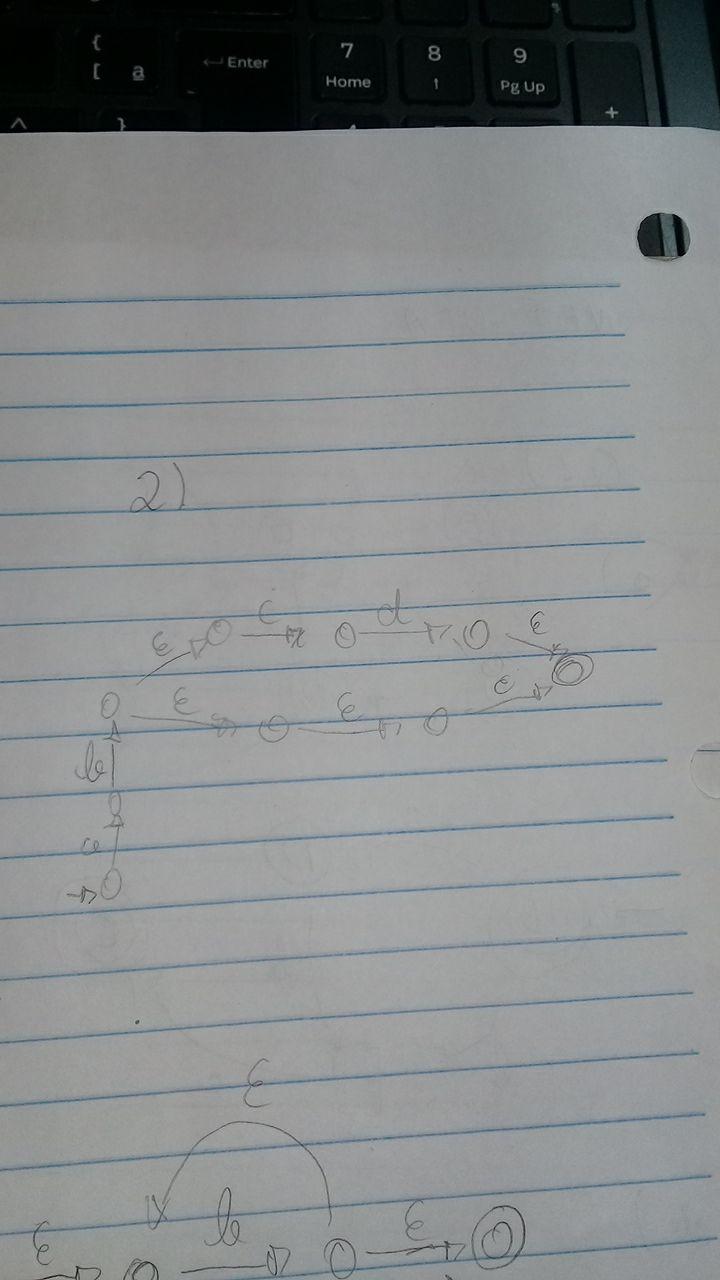 {
[ a
← Enter
7
Home
8
↑
9
Pg Up
+
^
}
2)
ε c d ε
ε ε ε
b
a
ε
ε b ε